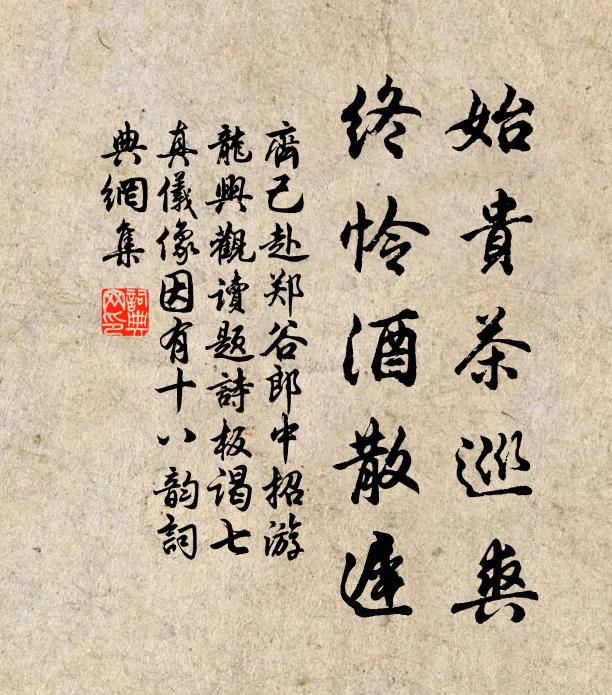 始貴茶巡爽
終怜酒散遲
齊己赴郑谷郎中招游
龍興觀讀題詩板謁七
真儀像因有十八韵詞
典網集
詞典
网印